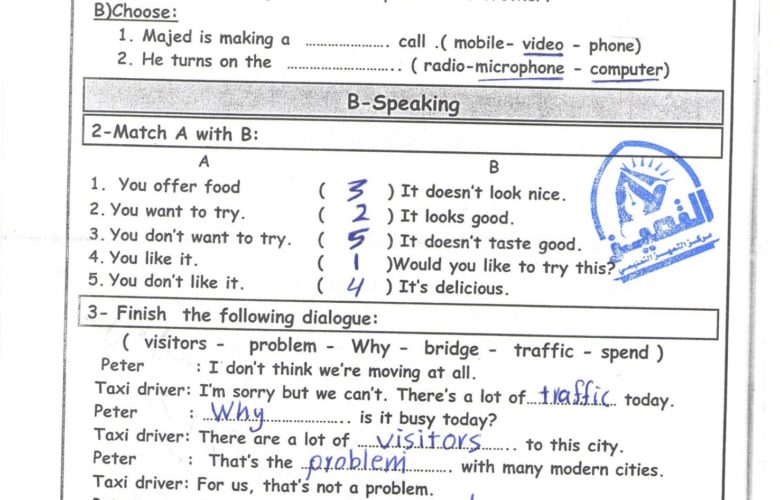 B)Choose:
1. Majed is making a ........................ call .( mobile- video - phone)
2. He turns on the ........................ ( radio-microphone - computer)
B-Speaking
2-Match A with B:
A B
1. You offer food ( 3 ) It doesn't look nice.
2. You want to try. ( 2 ) It looks good.
3. You don't want to try. ( 5 ) It doesn't taste good.
4. You like it. ( 1 )Would you like to try this?
5. You don't like it. ( 4 ) It's delicious.
التميز
مركز التميز التعليمي
3- Finish the following dialogue:
( visitors - problem - Why - bridge - traffic - spend )
Peter : I don't think we're moving at all.
Taxi driver: I'm sorry but we can't. There's a lot of traffic today.
Peter : Why is it busy today?
Taxi driver: There are a lot of visitors to this city.
Peter : That's the problem with many modern cities.
Taxi driver: For us, that's not a problem.